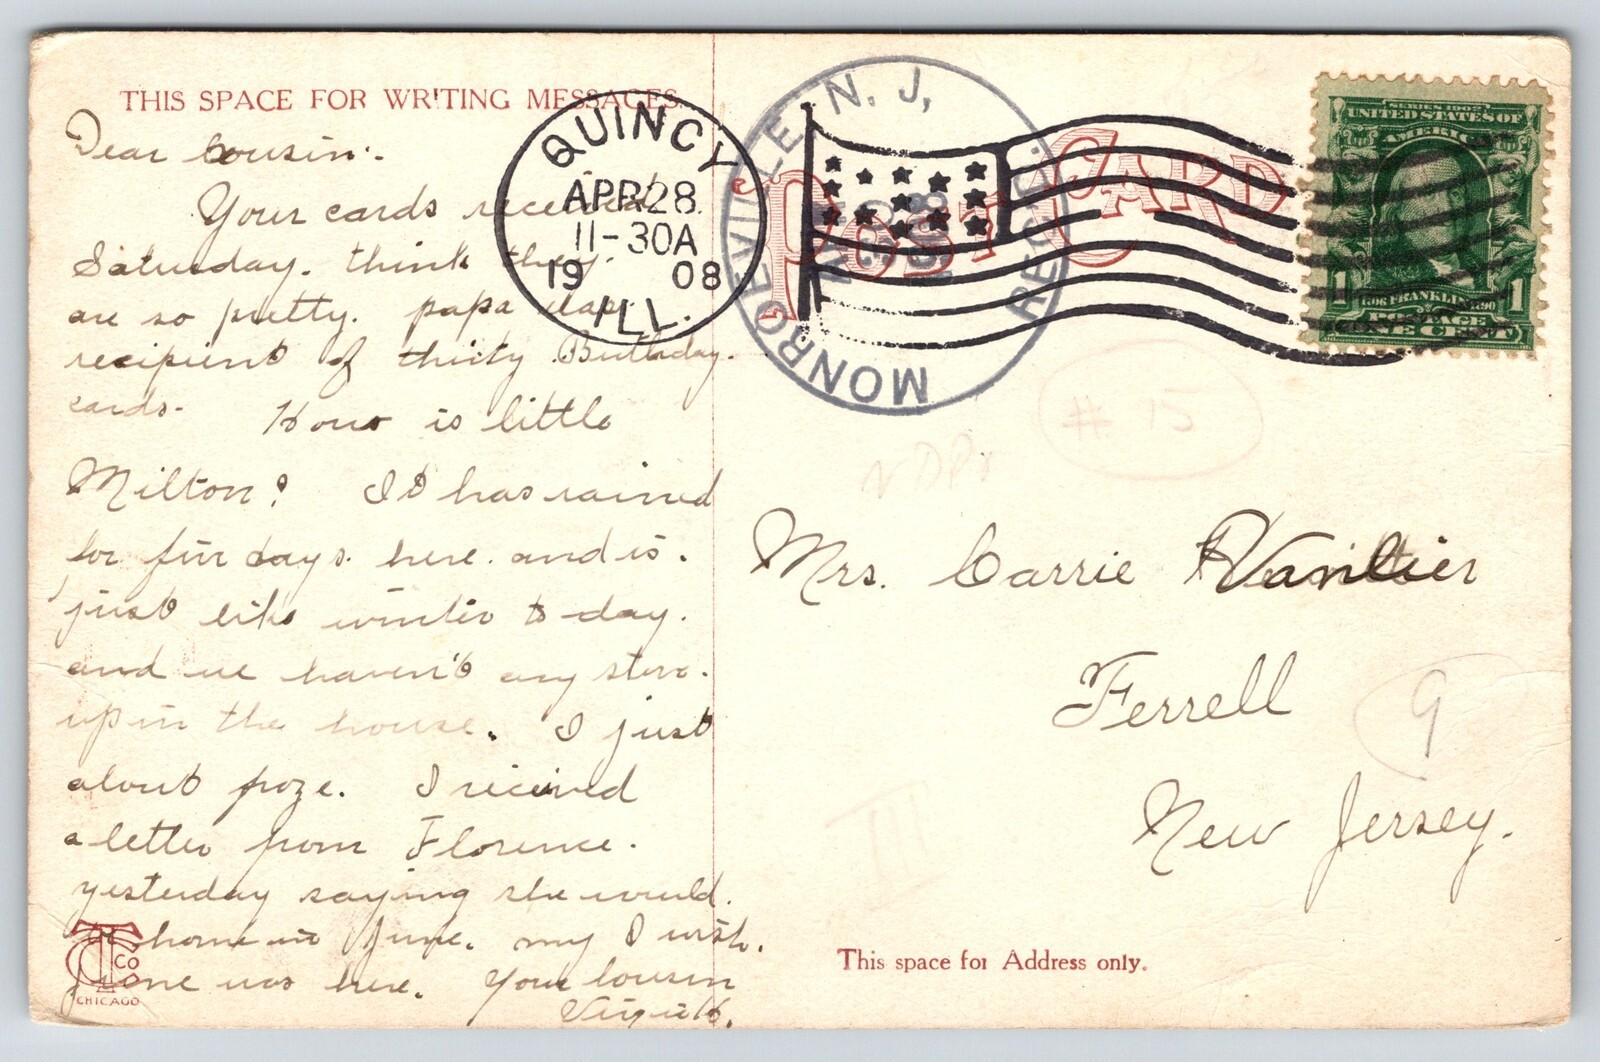 THIS SPACE FOR WRITING MESSAGES.
Dear Cousin:-
Your cards received
Saturday. think they
are so pretty. papa was
recipient of thirty Birthday.
cards. How is little
Milton? It has rained
for five days. here. and is.
just like winter to-day.
and we haven't any stove.
up in the house. I just
about froze. I received
a letter from Florence.
yesterday saying she would.
be home in June. my I wish.
June was here. Your Cousin
QUINCY
APR 28
11-30A
19 08
ILL.
MONROEVILLE, N. J.
REC.
POST CARD
SERIES 1902
UNITED STATES OF
AMERICA
1706 FRANKLIN 1790
1 1
POSTAGE
ONE CENT
# 15
Mrs. Carrie Vanlier
Ferrell
9
New Jersey.
III
This space for Address only.
CTCo
CHICAGO